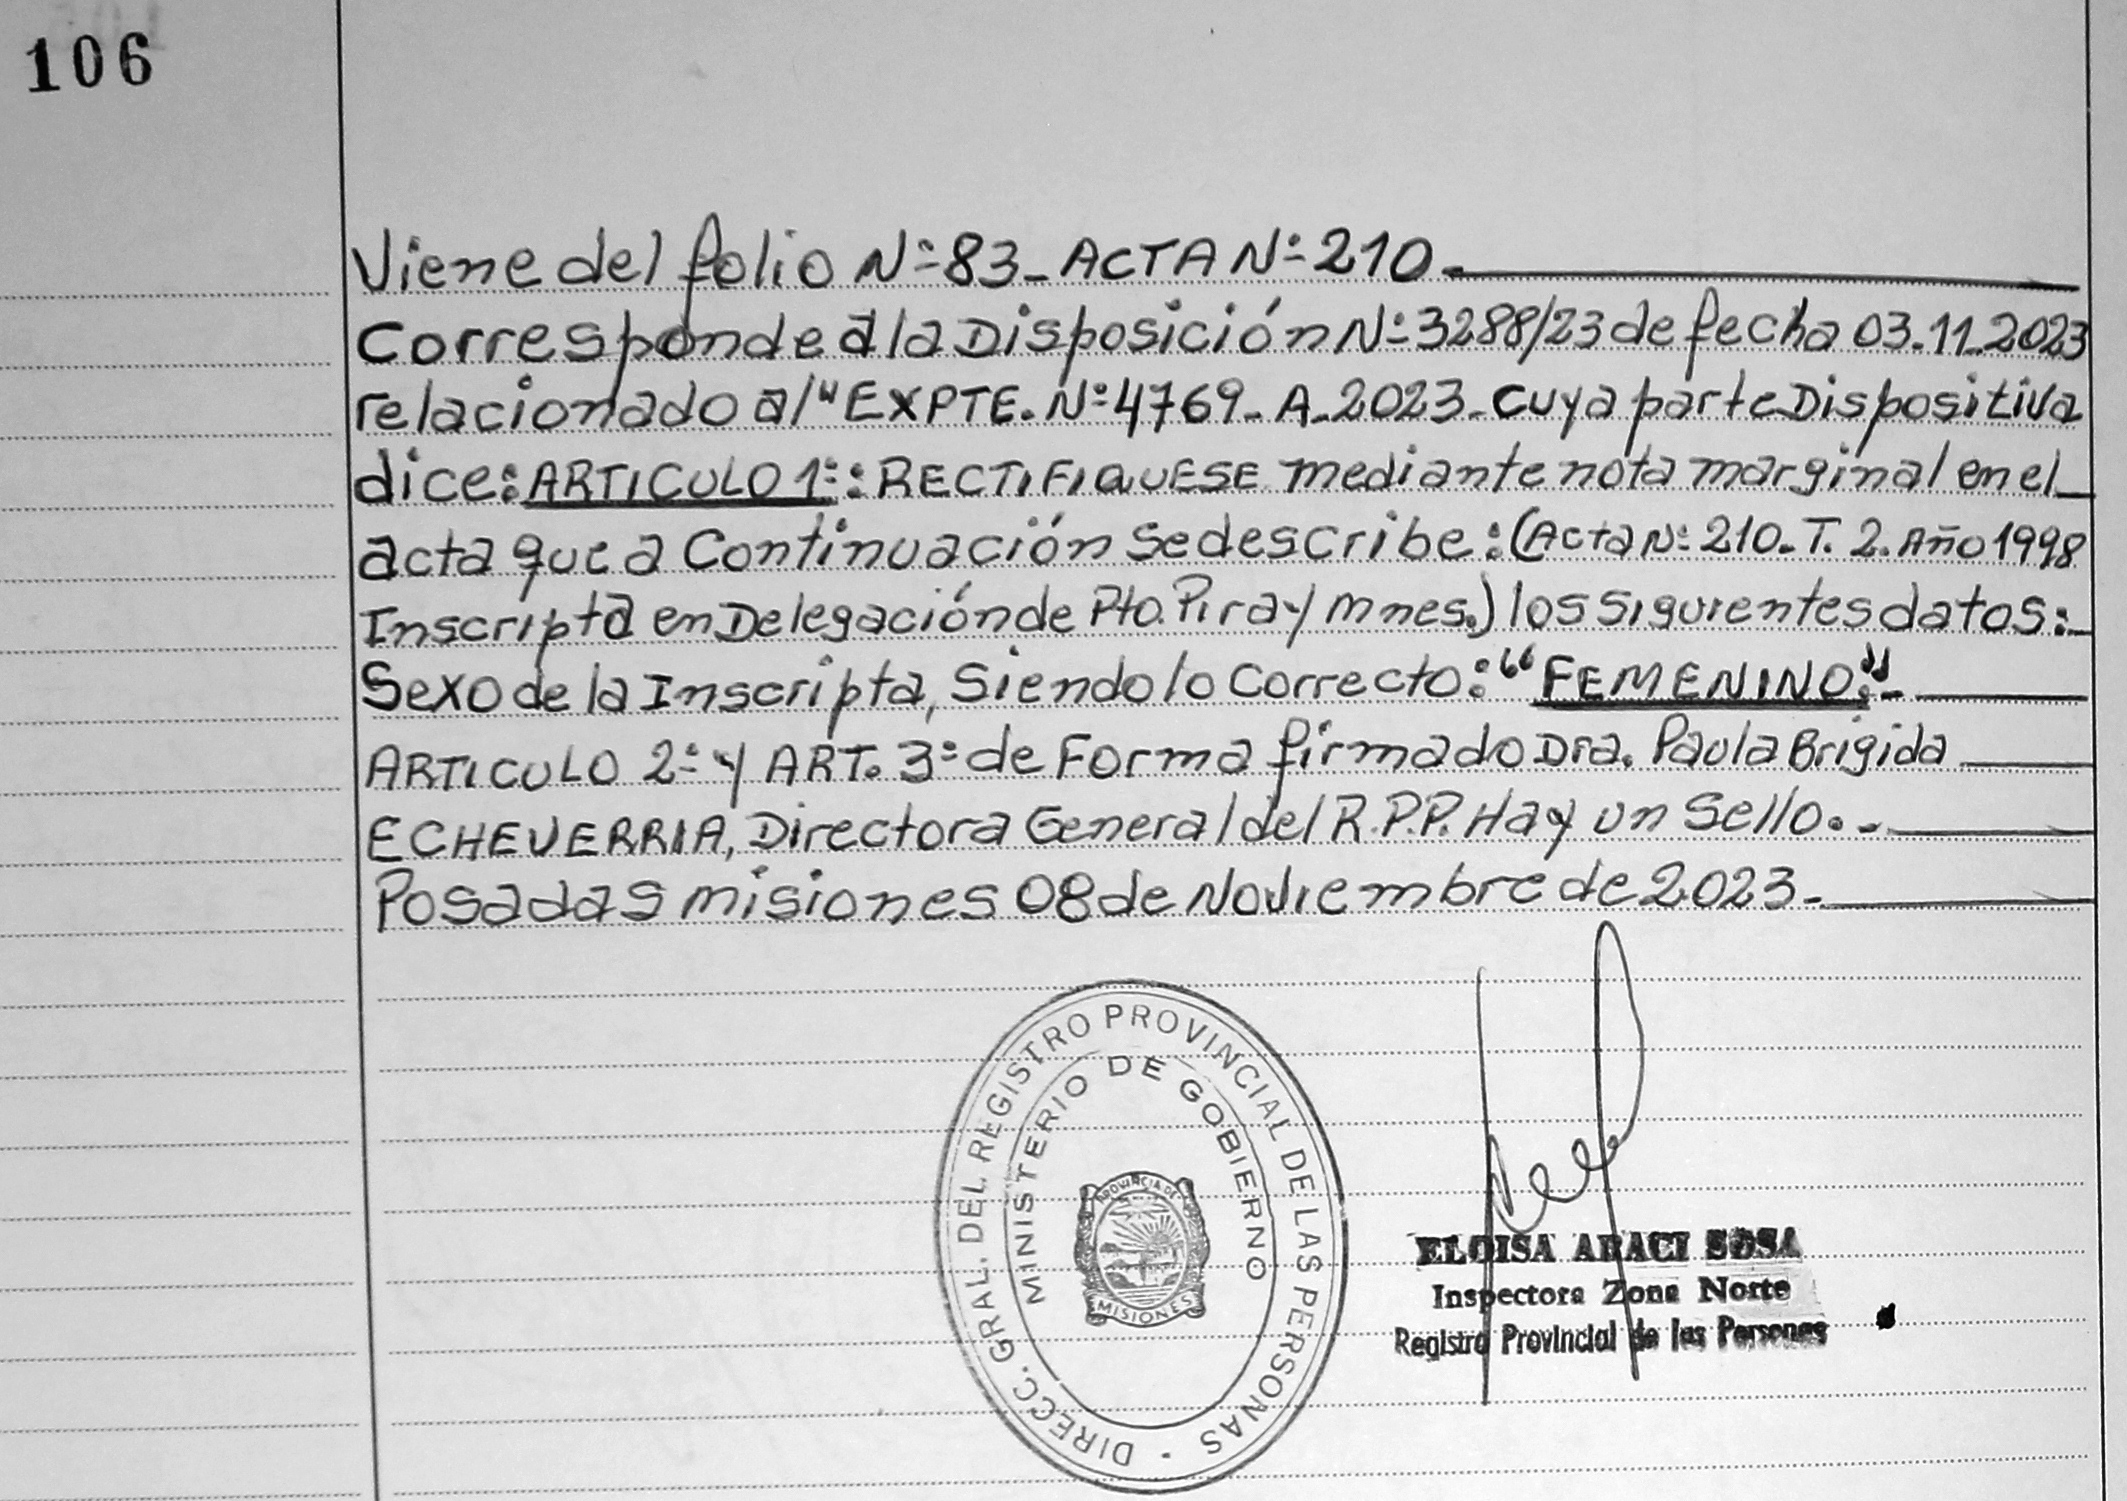 106
Viene del folio Nº 83_ ACTA Nº 210_
Corresponde a la Disposición Nº 3288/23 de fecha 03.11.2023
relacionado al "EXPTE. Nº 4769_ A_2023_ cuya parte Dispositiva
dice: ARTICULO 1º: RECTIFIQUESE mediante nota marginal en el
acta que a Continuación Se describe: (Acta Nº 210_ T. 2. Año 1998
Inscripta en Delegación de Pto. Piray mnes.) los siguientes datos:_
Sexo de la Inscripta, Siendo lo Correcto: "FEMENINO"._
ARTICULO 2º y ART. 3º de Forma firmado Dra. Paula Brigida
ECHEVERRIA, Directora General del R.P.P. Hay un Sello._
Posadas misiones 08 de Noviembre de 2023._
DIRECC. GRAL. DEL REGISTRO PROVINCIAL DE LAS PERSONAS
MINISTERIO DE GOBIERNO
PROVINCIA DE
MISIONES
ELOISA ARACI SOSA
Inspectora Zona Norte
Registro Provincial de las Personas